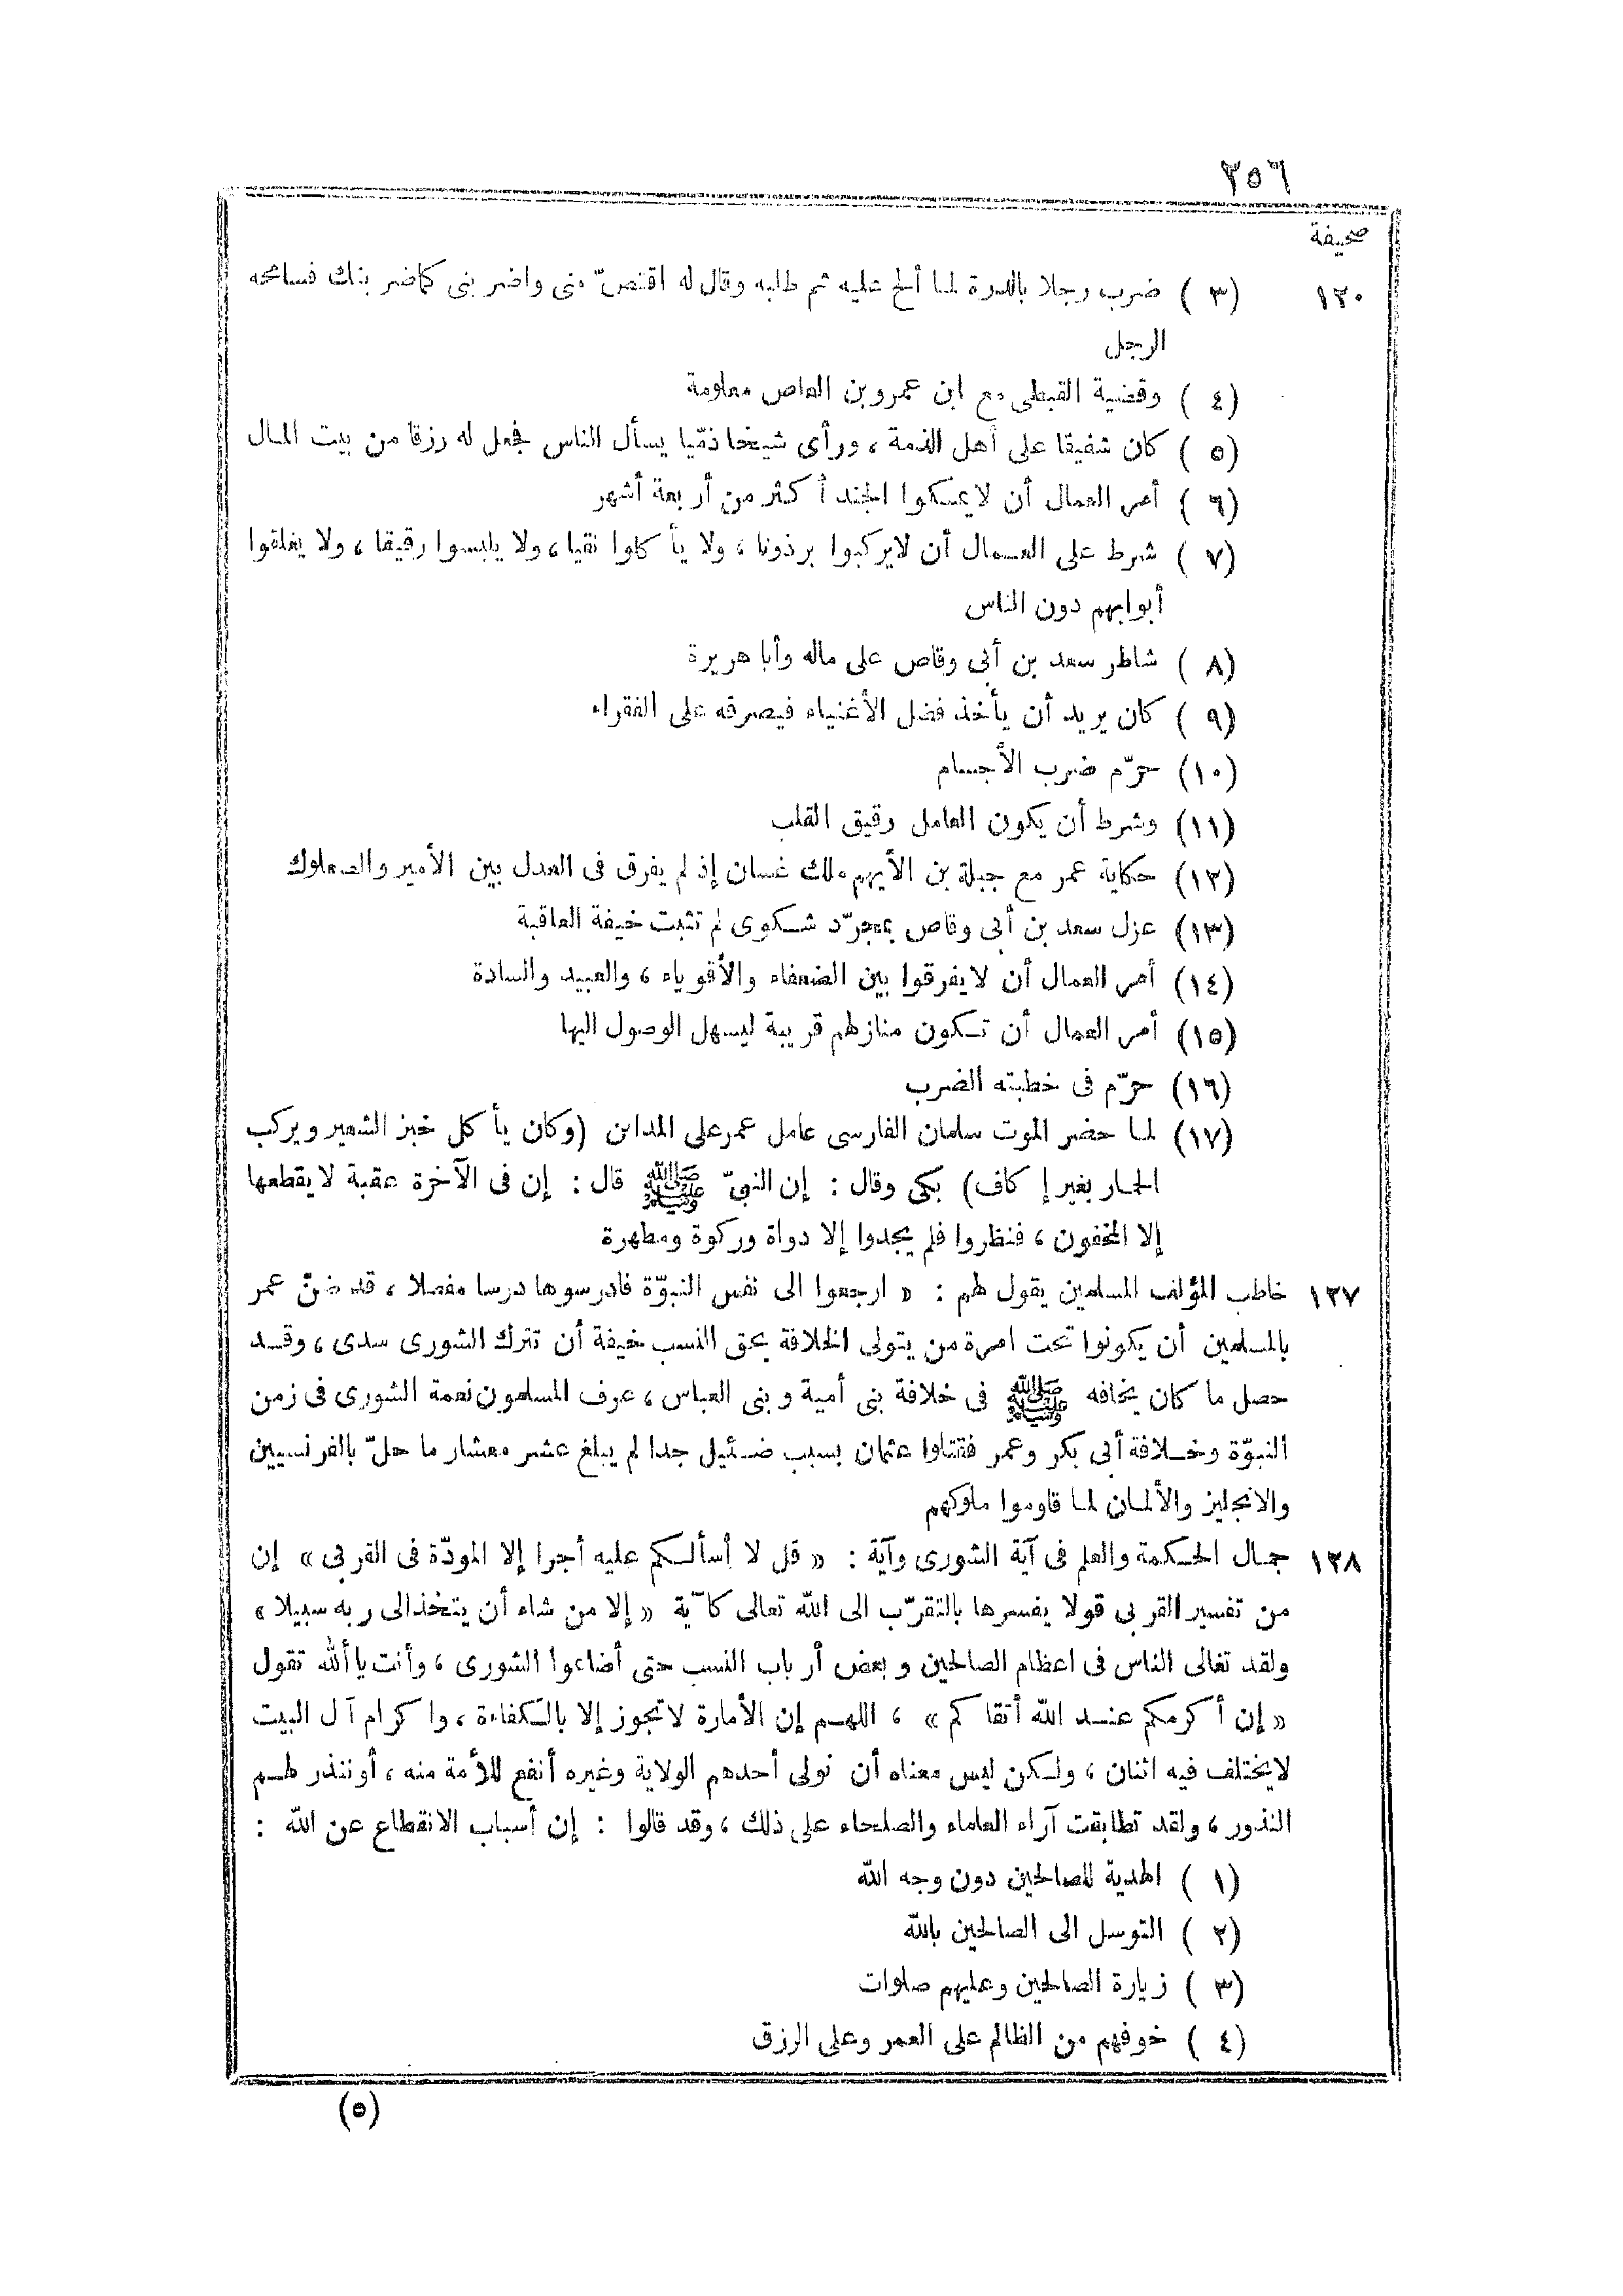 ٢٥٦
صحيفة
١٢٠ (٣) ضرب رجلا بالدرة لما ألح عليه ثم طلبه وقال له اقتصّ منى واضر بنى كماضر بنك فسامحه
الرجل
(٤) وقضية القبطى مع ابن عمرو بن العاص معلومة
(٥) كان شفيقا على أهل الذمة ، ورأى شيخا ذمّيا يسأل الناس فجعل له رزقا من بيت المال
(٦) أمر العمال أن لا يمسكوا الجند أكثر من أربعة أشهر
(٧) شرط على العمال أن لايركبوا برذونا ، ولا يأكلوا نقيا ، ولا يلبسوا رقيقا ، ولا يغلقوا
أبوابهم دون الناس
(٨) شاطر سعد بن أبى وقاص على ماله وأبا هريرة
(٩) كان يريد أن يأخذ فضل الأغنياء فيصرفه على الفقراء
(١٠) حرّم ضرب الأجسام
(١١) وشرط أن يكون العامل رقيق القلب
(١٢) حكاية عمر مع جبلة بن الأيهم ملك غسان إذ لم يفرق فى العدل بين الأمير والصعلوك
(١٣) عزل سعد بن أبى وقاص بمجرّد شكوى لم تثبت خيفة العاقبة
(١٤) أمر العمال أن لا يفرقوا بين الضعفاء والأقوياء ، والعبيد والسادة
(١٥) أمر العمال أن تكون منازلهم قريبة ليسهل الوصول اليها
(١٦) حرّم فى خطبته الضرب
(١٧) لما حضر الموت سلمان الفارسى عامل عمر على المدائن (وكان يأكل خبز الشعير ويركب
الحمار بغير إكاف) بكى وقال : إن النبىّ ﷺ قال : إن فى الآخرة عقبة لا يقطعها
إلا المخفون ، فنظروا فلم يجدوا إلا دواة وركوة ومطهرة
١٣٧ خاطب المؤلف المسلمين يقول لهم : « ارجعوا الى نفس النبوّة فادرسوها درسا مفصلا ، قد ضنّ عمر
بالمسلمين أن يكونوا تحت امرة من يتولى الخلافة بحق النسب خيفة أن تترك الشورى سدى ، وقد
حصل ما كان يخافه ﷺ فى خلافة بنى أمية وبنى العباس ، عرف المسلمون نعمة الشورى فى زمن
النبوّة وخلافة أبى بكر وعمر فقتلوا عثمان بسبب ضئيل جدا لم يبلغ عشر معشار ما حلّ بالفرنسيين
والانجليز والألمان لما قاوموا ملوكهم
١٣٨ جمال الحكمة والعلم فى آية الشورى وآية : « قل لا أسألكم عليه أجرا إلا المودّة فى القربى » إن
من تفسير القربى قولا يفسرها بالتقرّب الى الله تعالى كآية « إلا من شاء أن يتخذ الى ربه سبيلا »
ولقد تغالى الناس فى اعظام الصالحين وبعض أرباب النسب حتى أضاعوا الشورى ، وأنت يا ألله تقول
« إن أكرمكم عند الله أتقاكم » ، اللهم إن الأمارة لا تجوز إلا بالكفاءة ، واكرام آل البيت
لا يختلف فيه اثنان ، ولكن ليس معناه أن نولى أحدهم الولاية وغيره أنفع للأمة منه ، أو ننذر لهم
النذور ، ولقد تطابقت آراء العلماء والصلحاء على ذلك ، وقد قالوا : إن أسباب الانقطاع عن الله :
(١) الهدية للصالحين دون وجه الله
(٢) التوسل الى الصالحين بالله
(٣) زيارة الصالحين وعليهم صلوات
(٤) خوفهم من الظالم على العمر وعلى الرزق
(٥)